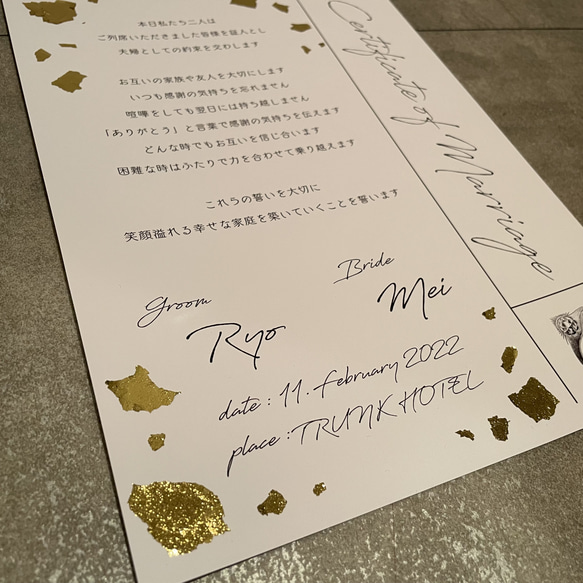 本日私たち二人は
ご列席いただきました皆様を証人とし
夫婦としての約束を交わします
お互いの家族や友人を大切にします
いつも感謝の気持ちを忘れません
喧嘩をしても翌日には持ち越しません
「ありがとう」と言葉で感謝の気持ちを伝えます
どんな時でもお互いを信じ合います
困難な時はふたりで力を合わせて乗り越えます
これらの誓いを大切に
笑顔溢れる幸せな家庭を築いていくことを誓います
Groom
Ryo
Bride
Mei
date : 11. February 2022
place : TRUNK HOTEL
Certificate of Marriage